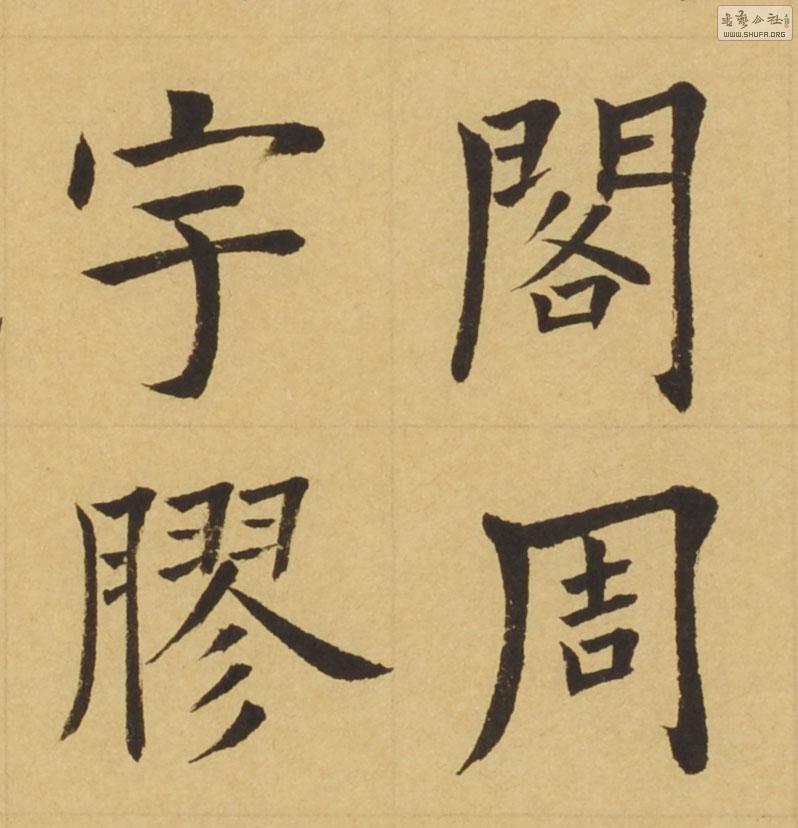 閣周
宇膠
書藝公社
WWW.SHUFA.ORG